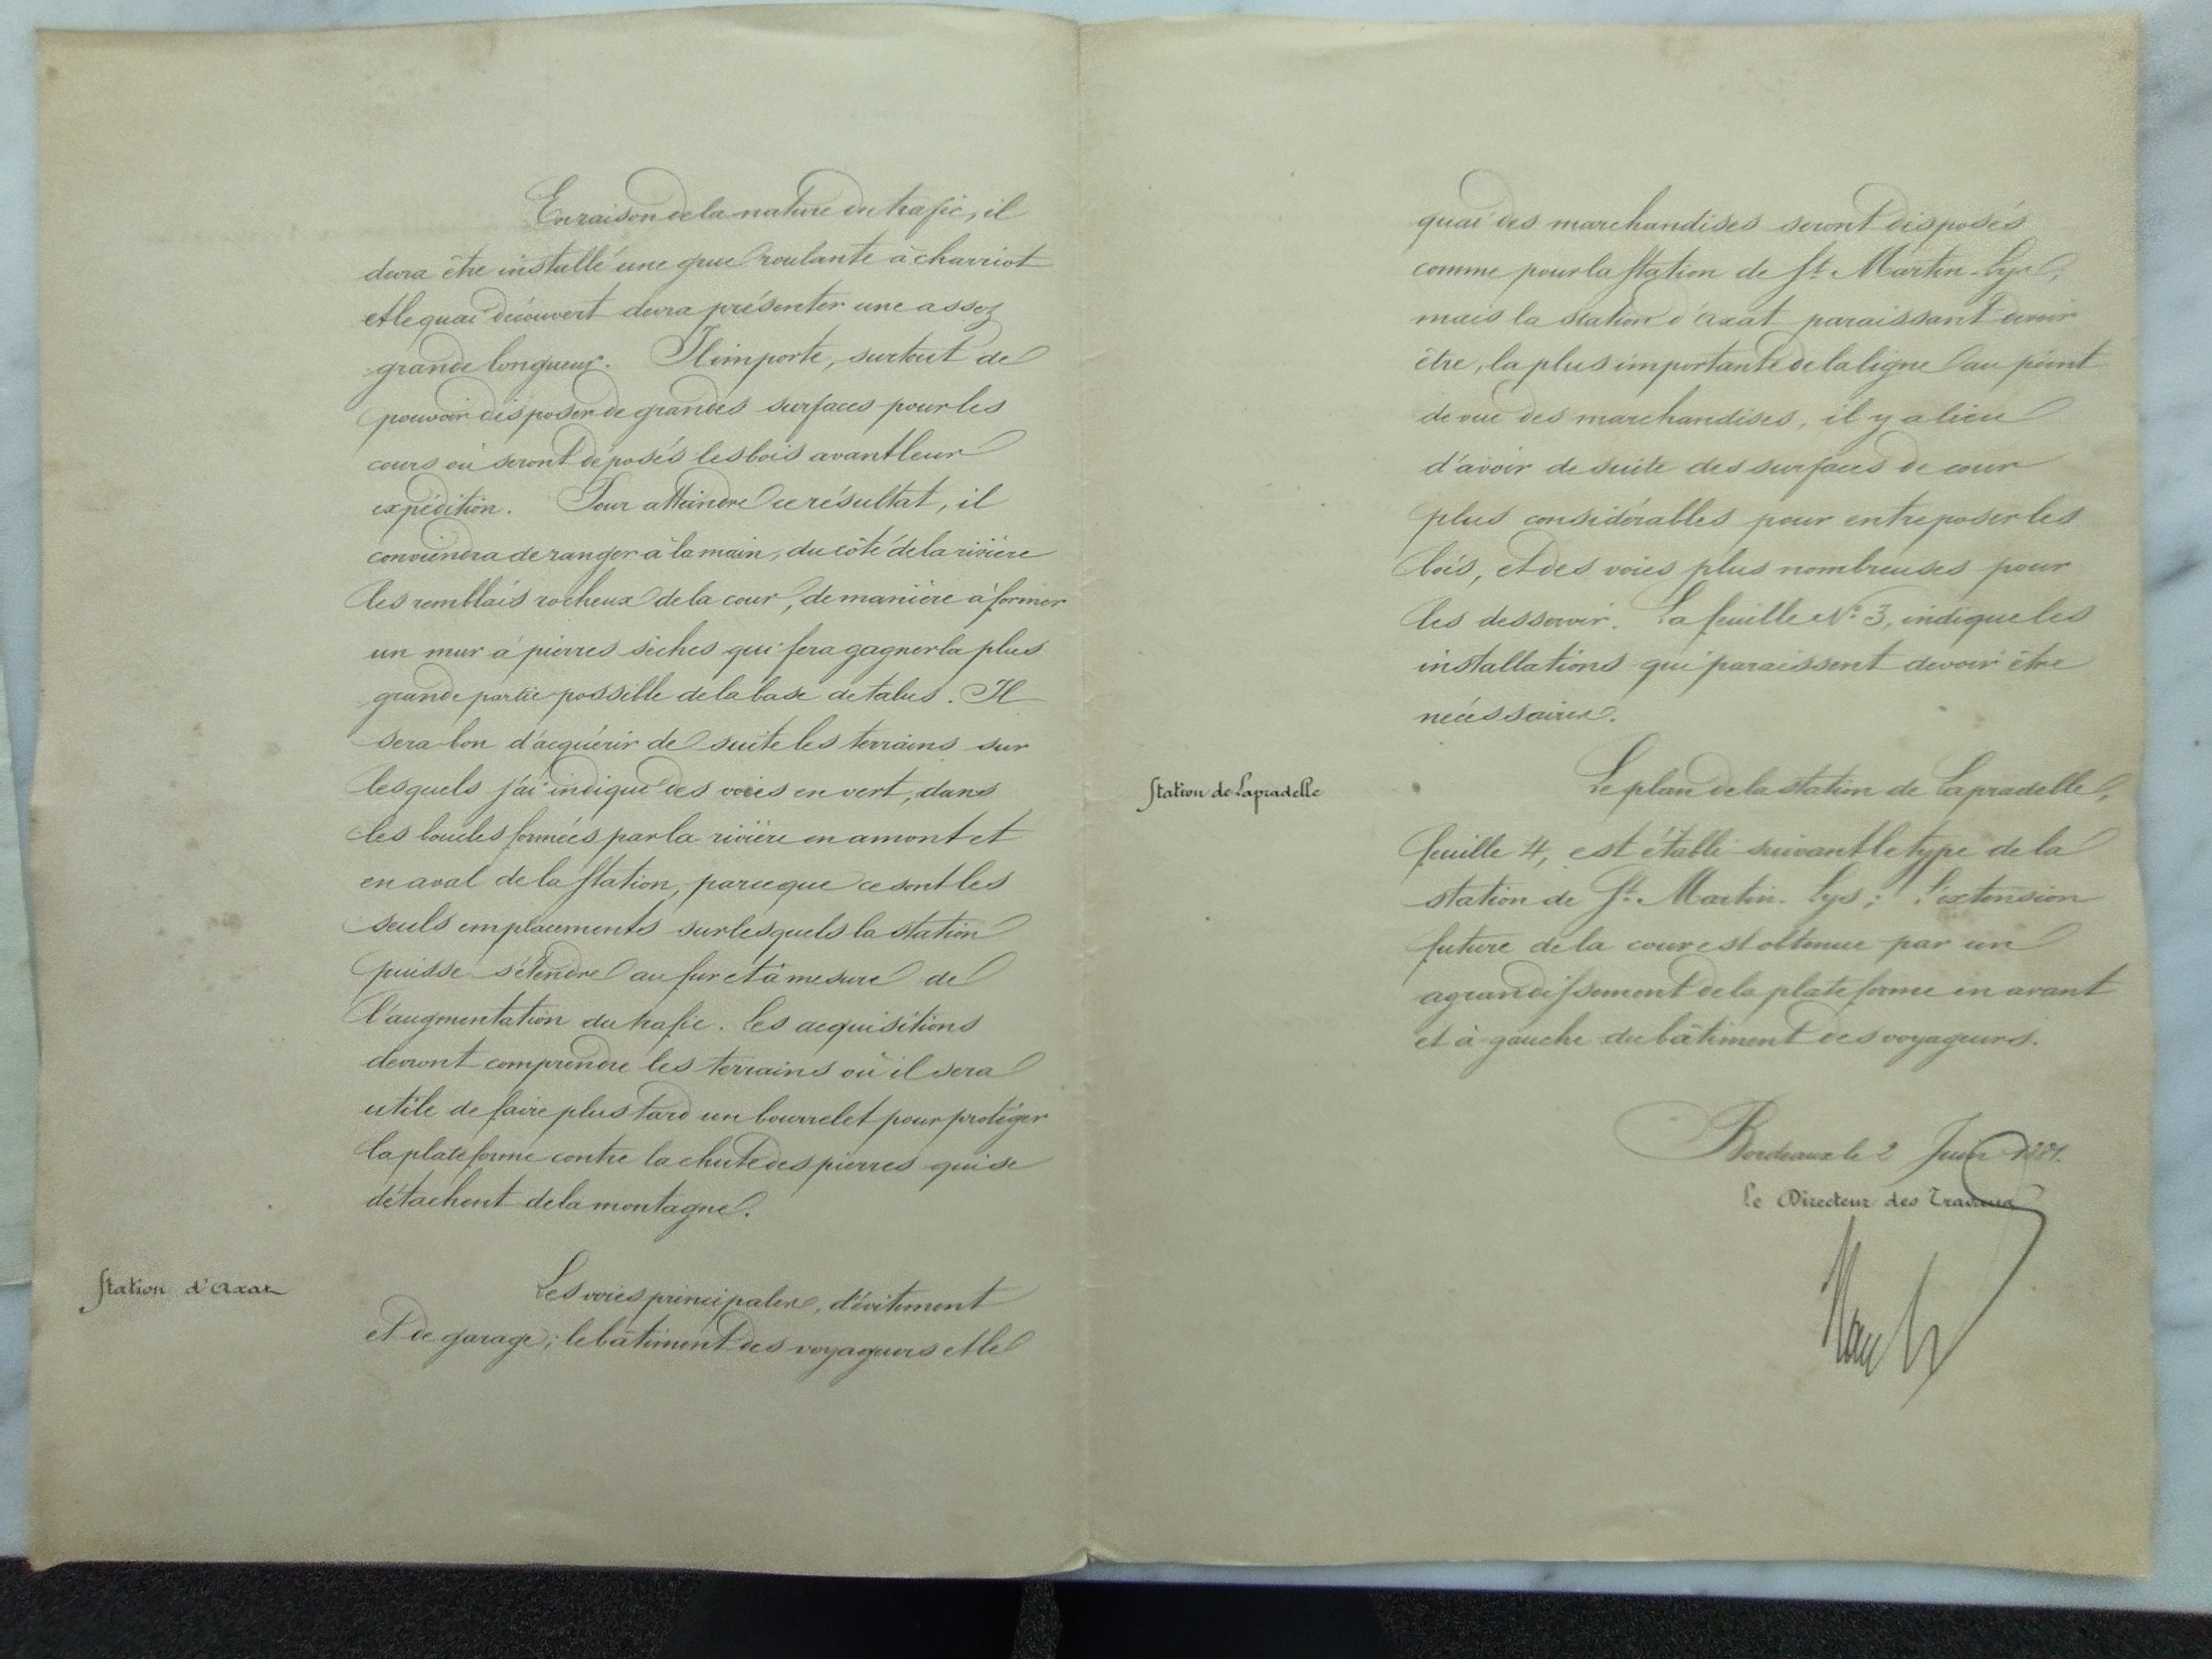 En raison de la nature du trafic, il
devra être installé une grue roulante à charriot
et le quai découvert devra présenter une assez
grande longueur. Il importe, surtout de
pouvoir disposer de grandes surfaces pour les
cours où seront déposés les bois avant leur
expédition. Pour atteindre ce résultat, il
conviendra de ranger à la main, du côté de la rivière
les remblais rocheux de la cour, de manière à former
un mur à pierres sèches qui fera gagner la plus
grande partie possible de la base de talus. Il
sera bon d'acquérir de suite les terrains sur
lesquels j'ai indiqué des voies en vert, dans
les boucles formées par la rivière en amont et
en aval de la station, parce que ce sont les
seuls emplacements sur lesquels la station
puisse s'étendre au fur et à mesure de
l'augmentation du trafic. Les acquisitions
devront comprendre les terrains où il sera
utile de faire plus tard un bourrelet pour protéger
la plateforme contre la chute des pierres qui se
détachent de la montagne.
Station d'Axat
Les voies principales, d'évitement
et de garage; le bâtiment des voyageurs et le
quai des marchandises seront disposés
comme pour la station de St. Martin-Lys;
mais la station d'Axat paraissant devoir
être, la plus importante de la ligne au point
de vue des marchandises, il y a lieu
d'avoir de suite des surfaces de cour
plus considérables pour entreposer les
bois, et des voies plus nombreuses pour
les desservir. La feuille No. 3, indique les
installations qui paraissent devoir être
nécessaires.
Station de Lapradelle
Le plan de la station de Lapradelle,
feuille 4, est établi suivant le type de la
station de St. Martin-Lys; l'extension
future de la cour est obtenue par un
agrandissement de la plateforme en avant
et à gauche du bâtiment des voyageurs.
Bordeaux le 2 Juin 1881.
Le Directeur des Travaux